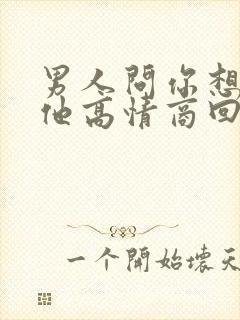 男人問你想
他高情商回
一个開始壞天